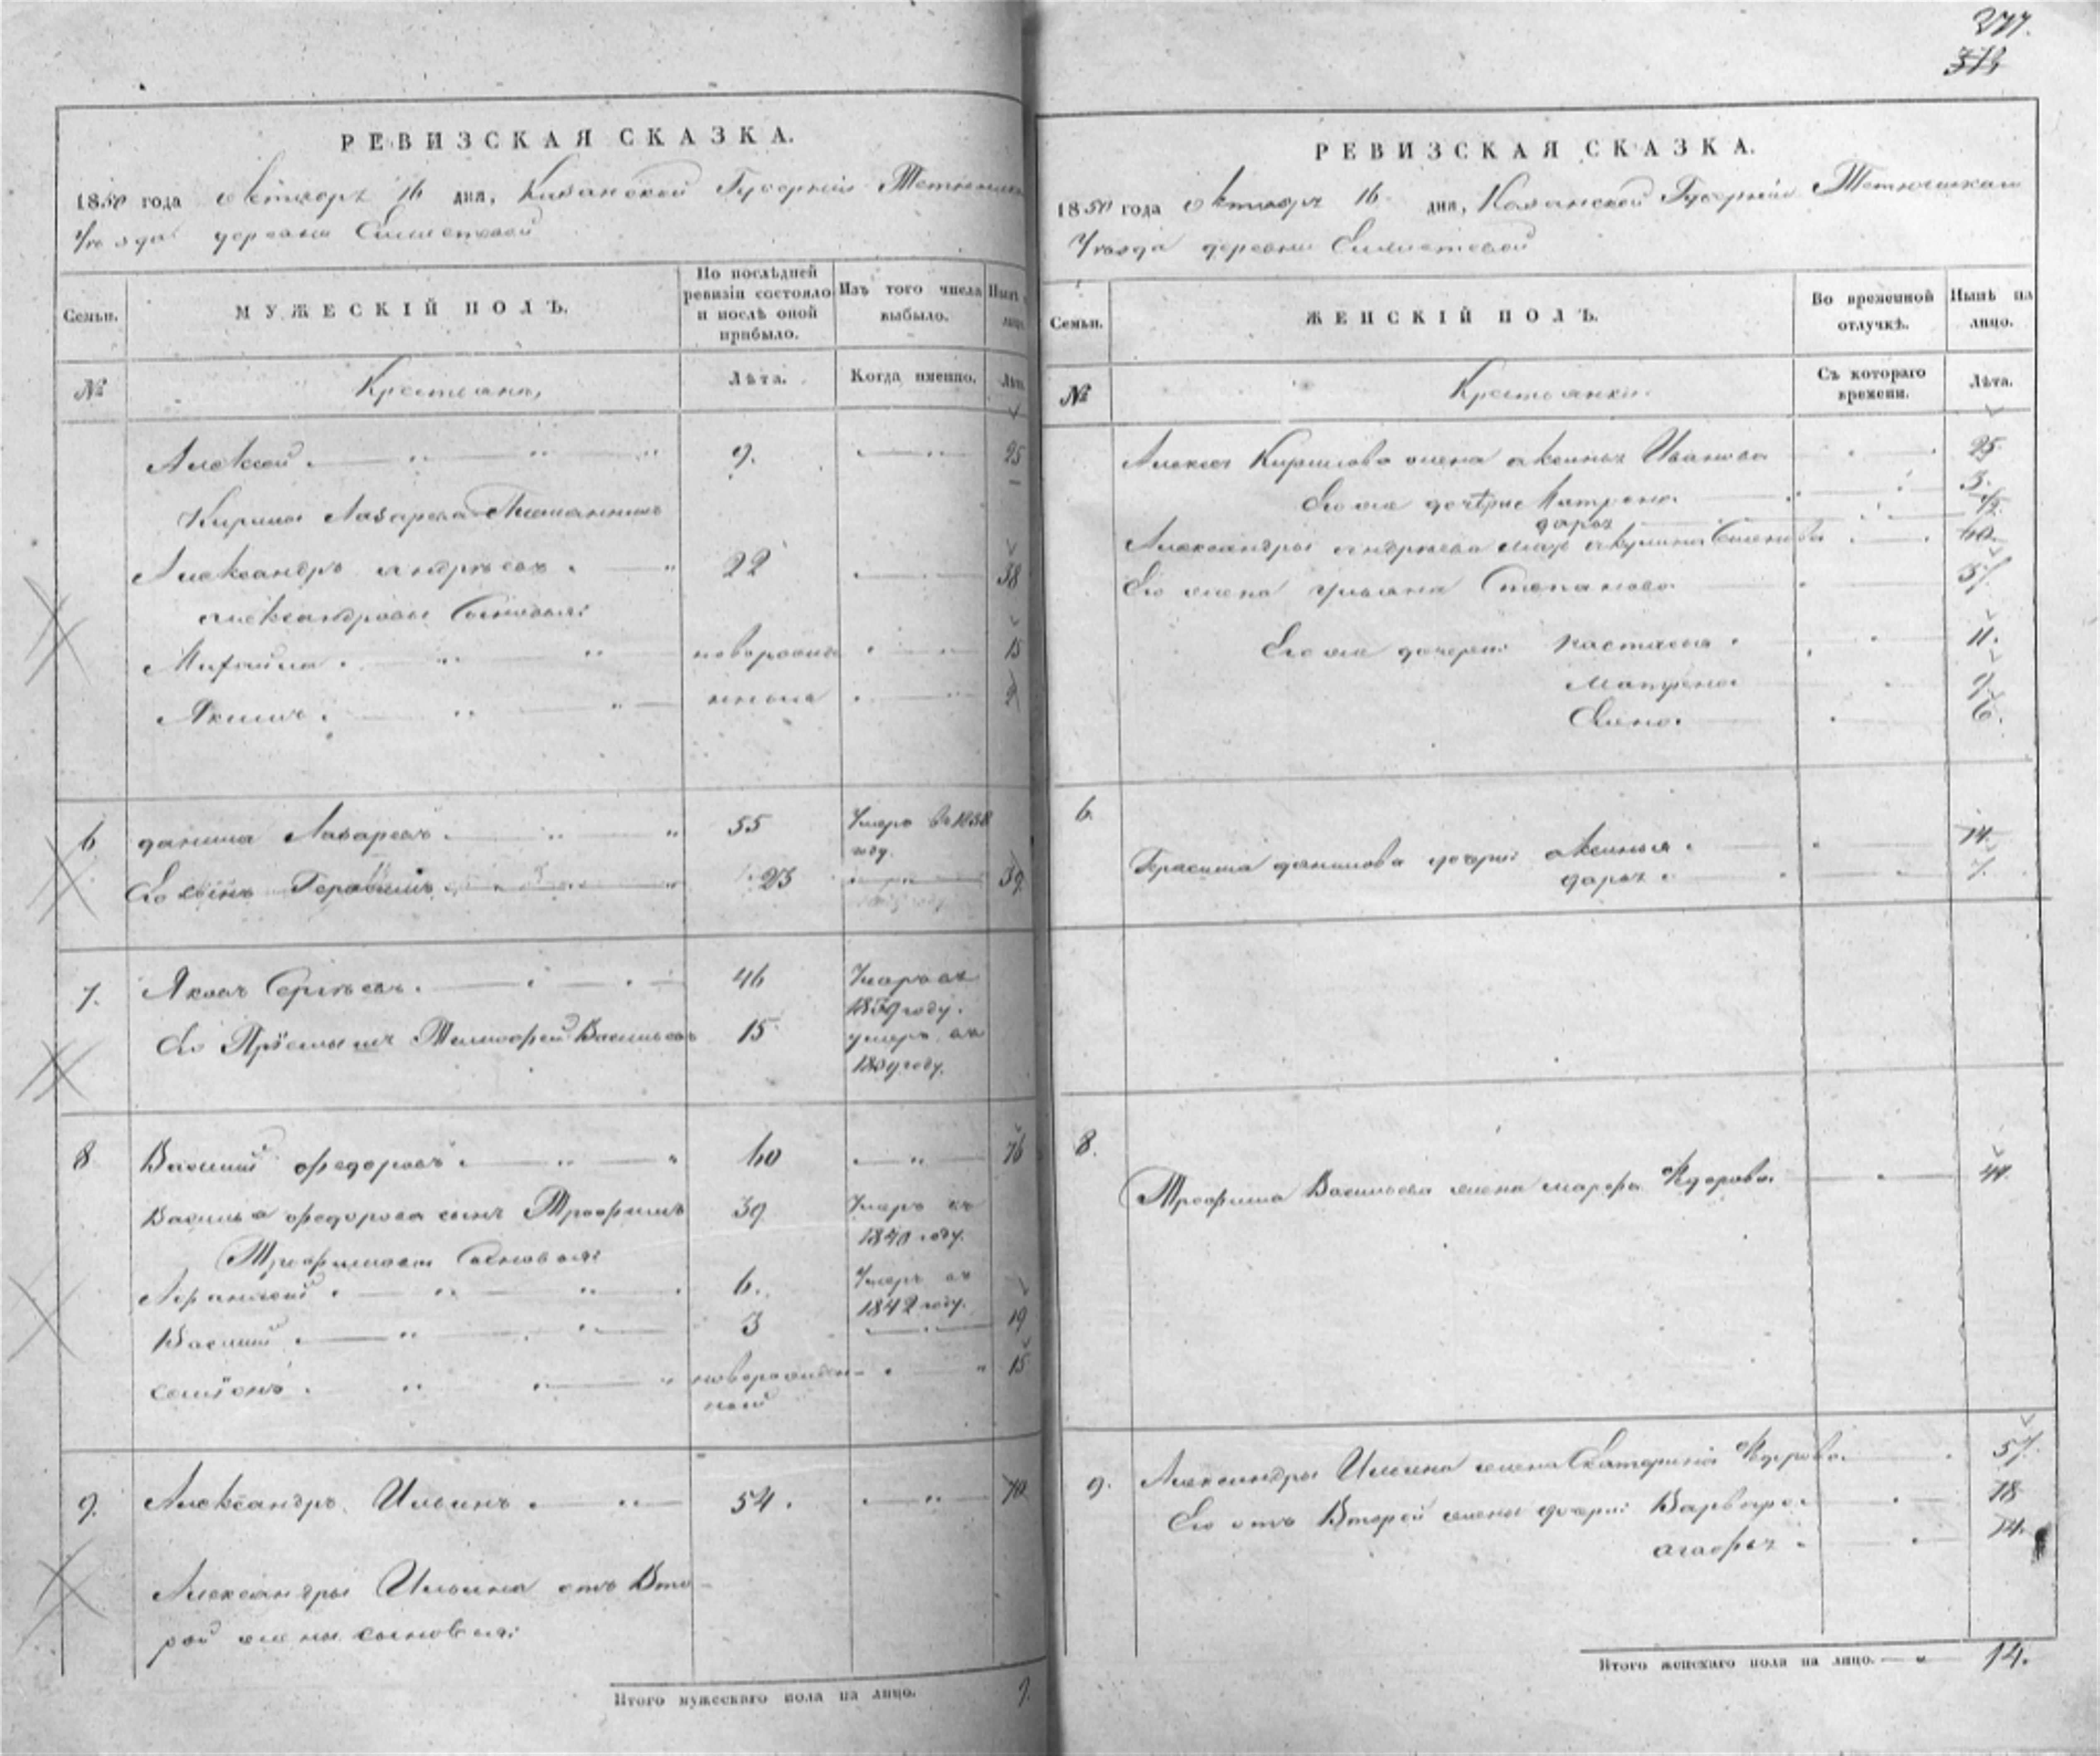 277.
РЕВИЗСКАЯ СКАЗКА.
1850 года Октября 16 дня, Казанской Губерніи
Уѣзда деревни
Семьи.
МУЖЕСКІЙ ПОЛЪ.
По послѣдней ревизіи состояло и послѣ оной прибыло.
Изъ того числа выбыло.
Нынѣ
лицо.
№
Крестьяне,
Лѣта.
Когда именно.
Лѣта
Алексей 9. 25
Кирила Лазарева
Александръ Андреевъ 22 38
Александровы Сыновья:
Михайла новорожде 15
Якимъ нныя
6 данила Лазаревъ 55 Умеръ въ 1838 году.
Его сынъ Герасимъ 23 39
7. Яковъ Сергѣевъ 46 Умеръ въ году.
Его Пріемышъ Тимофей Васильевъ 15 умеръ въ году.
8 Василий Федоровъ 60 76
Василья Федорова сынъ Трофимъ 39 Умеръ въ 1840 году.
Трофимовы Сыновья:
6. Умеръ въ 1842 году.
Василий 3 19
семіонъ новорожден- ной 15
9. Александръ Ильинъ 54. 70
Александры Ильина отъ Вто-
рой жены сыновья:
Итого мужескаго пола на лицо. 9.
РЕВИЗСКАЯ СКАЗКА.
1850 года Октября 16 дня, Казанской Губерніи Тетюшскаго
Уѣзда деревни
Семьи.
ЖЕНСКІЙ ПОЛЪ.
Во временной отлучкѣ.
Нынѣ на лицо.
№
Крестьянки.
Съ котораго времени.
Лѣта.
Алексея Кирилова жена Аксинья Иванова 25
Его же дочери Матрена 3.
дарья 1/2
Александры Андреева мать Акулина 60.
Его жена Ульяна Степанова 37.
Его же дочери: Настасья 11.
Матрена 9.
Елена. 6.
6.
Герасима данилова дочери: Аксинья 14.
дарья 7.
8.
Трофима Васильева жена марфа Федорова
9. Александры Ильина жена Екатерина Федорова. 57.
Его отъ Второй жены дочери: Варвара 18
агафья 14.
Итого женскаго пола на лицо. 14.